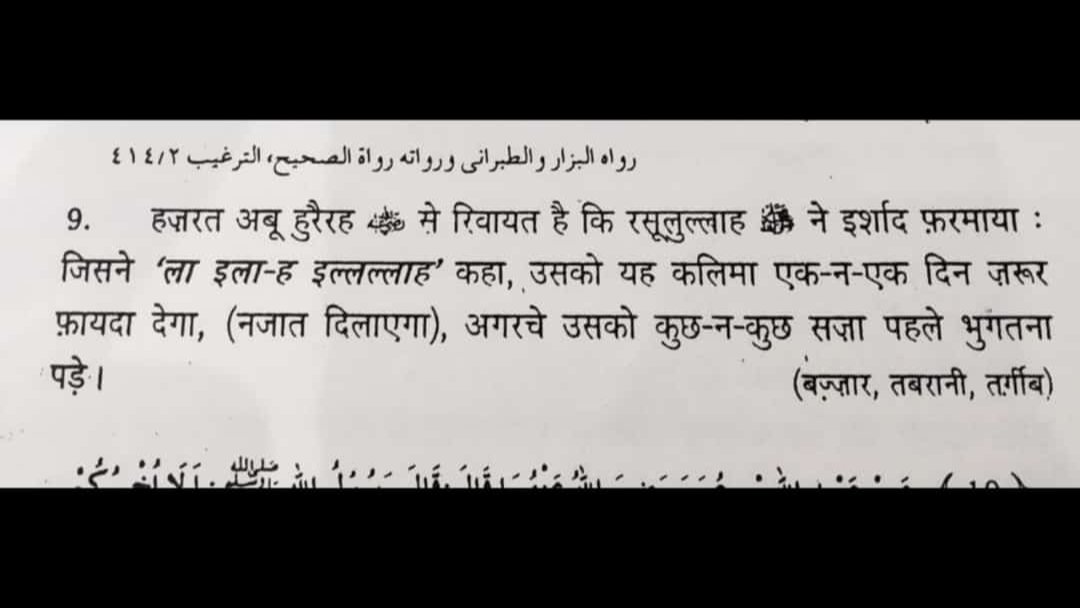 رواه البزار والطبرانی ورواته رواة الصحیح، الترغیب ٤١٤/٢
9. हज़रत अबू हुरैरह ؓ से रिवायत है कि रसूलुल्लाह ﷺ ने इर्शाद फ़रमाया :
जिसने ‘ला इला-ह इल्लल्लाह’ कहा, उसको यह कलिमा एक-न-एक दिन ज़रूर
फ़ायदा देगा, (नजात दिलाएगा), अगरचे उसको कुछ-न-कुछ सज़ा पहले भुगतना
पड़े। (बज़्ज़ार, तबरानी, तर्ग़ीब)